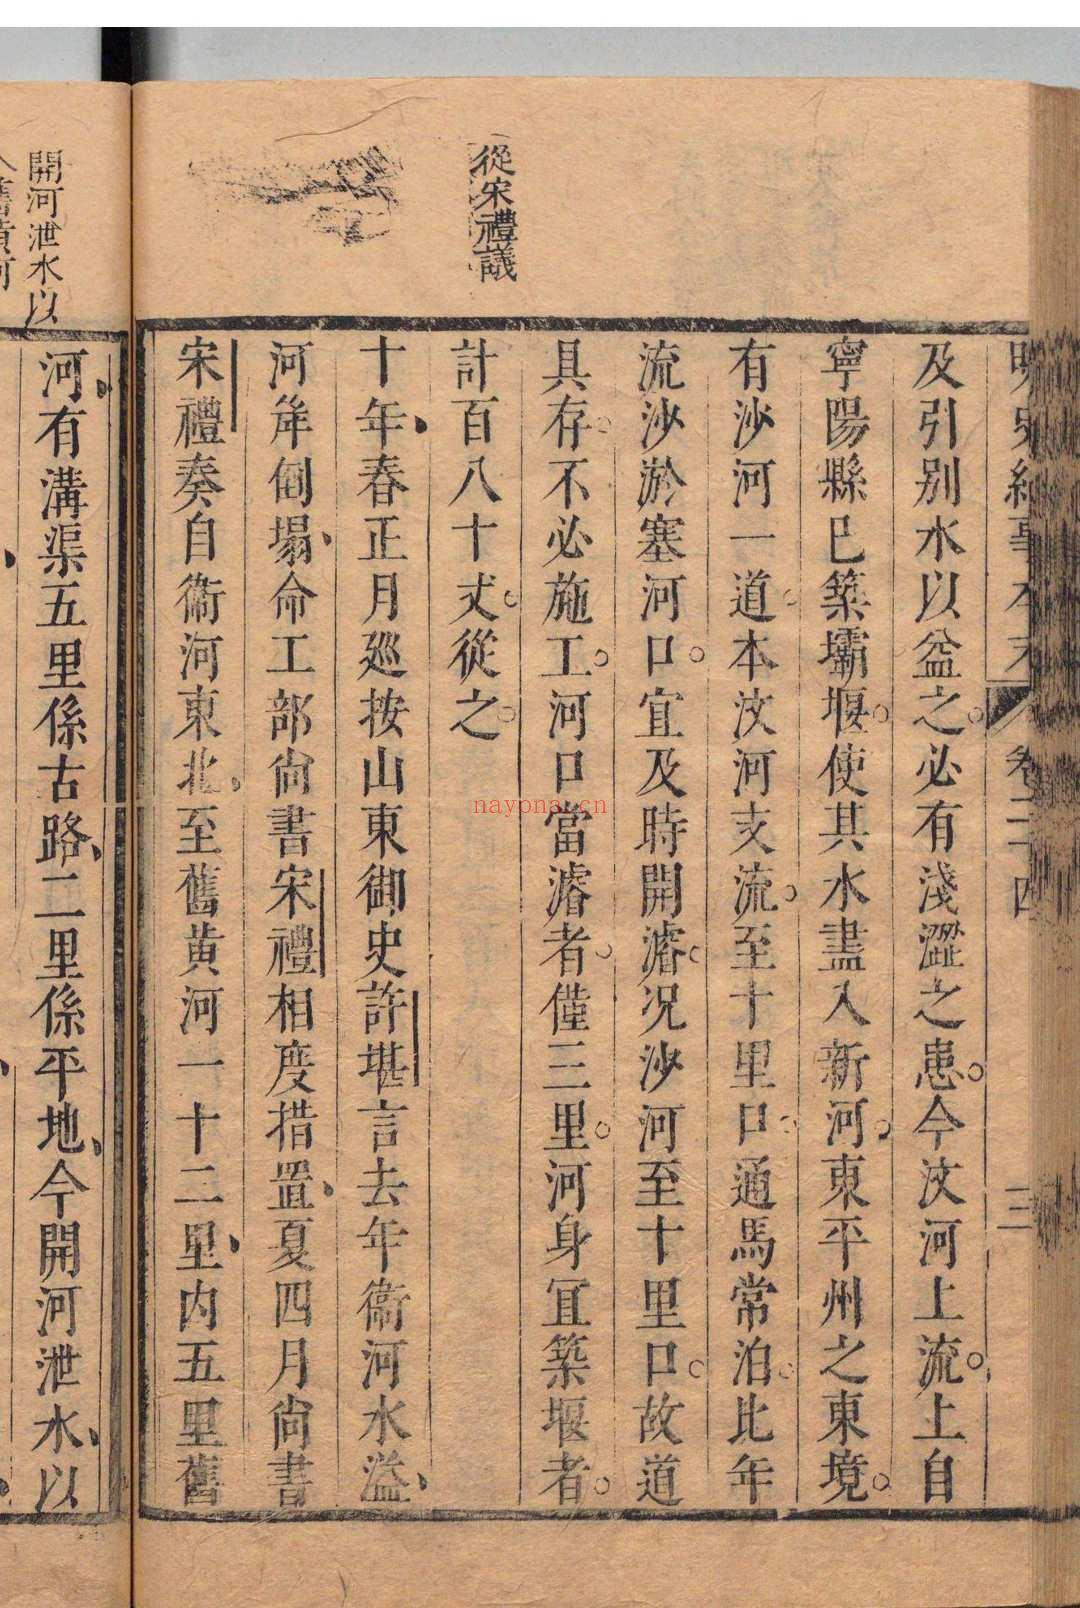 明史紀事本末 卷二十四 三
及引别水以益之必有淺澀之患今汶河上流上自
寧陽縣已築壩堰使其水盡入新河東平州之東境
有沙河一道本汶河支流至十里口通馬常泊比年
流沙淤塞河口宜及時開濬况沙河至十里口故道
具存不必施工河口當濬者僅三里河身宜築堰者
計百八十丈從之
從宋禮議
十年春正月巡按山東御史許堪言去年衞河水溢
河岸倒塌命工部尙書宋禮相度措置夏四月尙書
宋禮奏自衞河東北至舊黄河一十二里内五里舊
河有溝渠五里係古路二里係平地今開河泄水以
開河泄水以
入舊黄河
naypna.cn